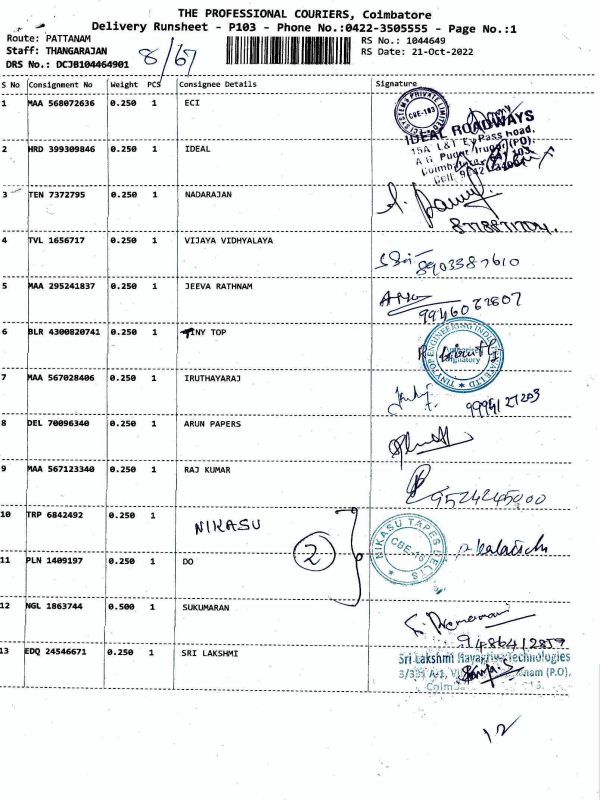 THE PROFESSIONAL COURIERS, Coimbatore
Delivery Runsheet - P103 - Phone No.:0422-3505555 - Page No.:1
Route: PATTANAM
RS No.: 1044649
Staff: THANGARAJAN
8/67
RS Date: 21-Oct-2022
DRS No.: DCJB104464901
S No Consignment No Weight PCS Consignee Details Signature
1 MAA 568072636 0.250 1 ECI
SYSTEMS PRIVATE LIMITED
CBE-103
IDEAL ROADWAYS
2 HRD 399309846 0.250 1 IDEAL
3 TEN 7372795 0.250 1 NADARAJAN
4 TVL 1656717 0.250 1 VIJAYA VIDHYALAYA
8903387610
5 MAA 295241837 0.250 1 JEEVA RATHNAM
6 BLR 4300820741 0.250 1 TINY TOP
TINYTOP ENGINEERING INDIA PRIVATE LTD
7 MAA 567028406 0.250 1 IRUTHAYARAJ
8 DEL 70096340 0.250 1 ARUN PAPERS
9 MAA 567123340 0.250 1 RAJ KUMAR
9524245000
10 TRP 6842492 0.250 1 NIKASU
2
NIKASU TAPES
11 PLN 1409197 0.250 1 DO
12 NGL 1863744 0.500 1 SUKUMARAN
9486412859
13 EDQ 24546671 0.250 1 SRI LAKSHMI
Sri Lakshmi Technologies
12